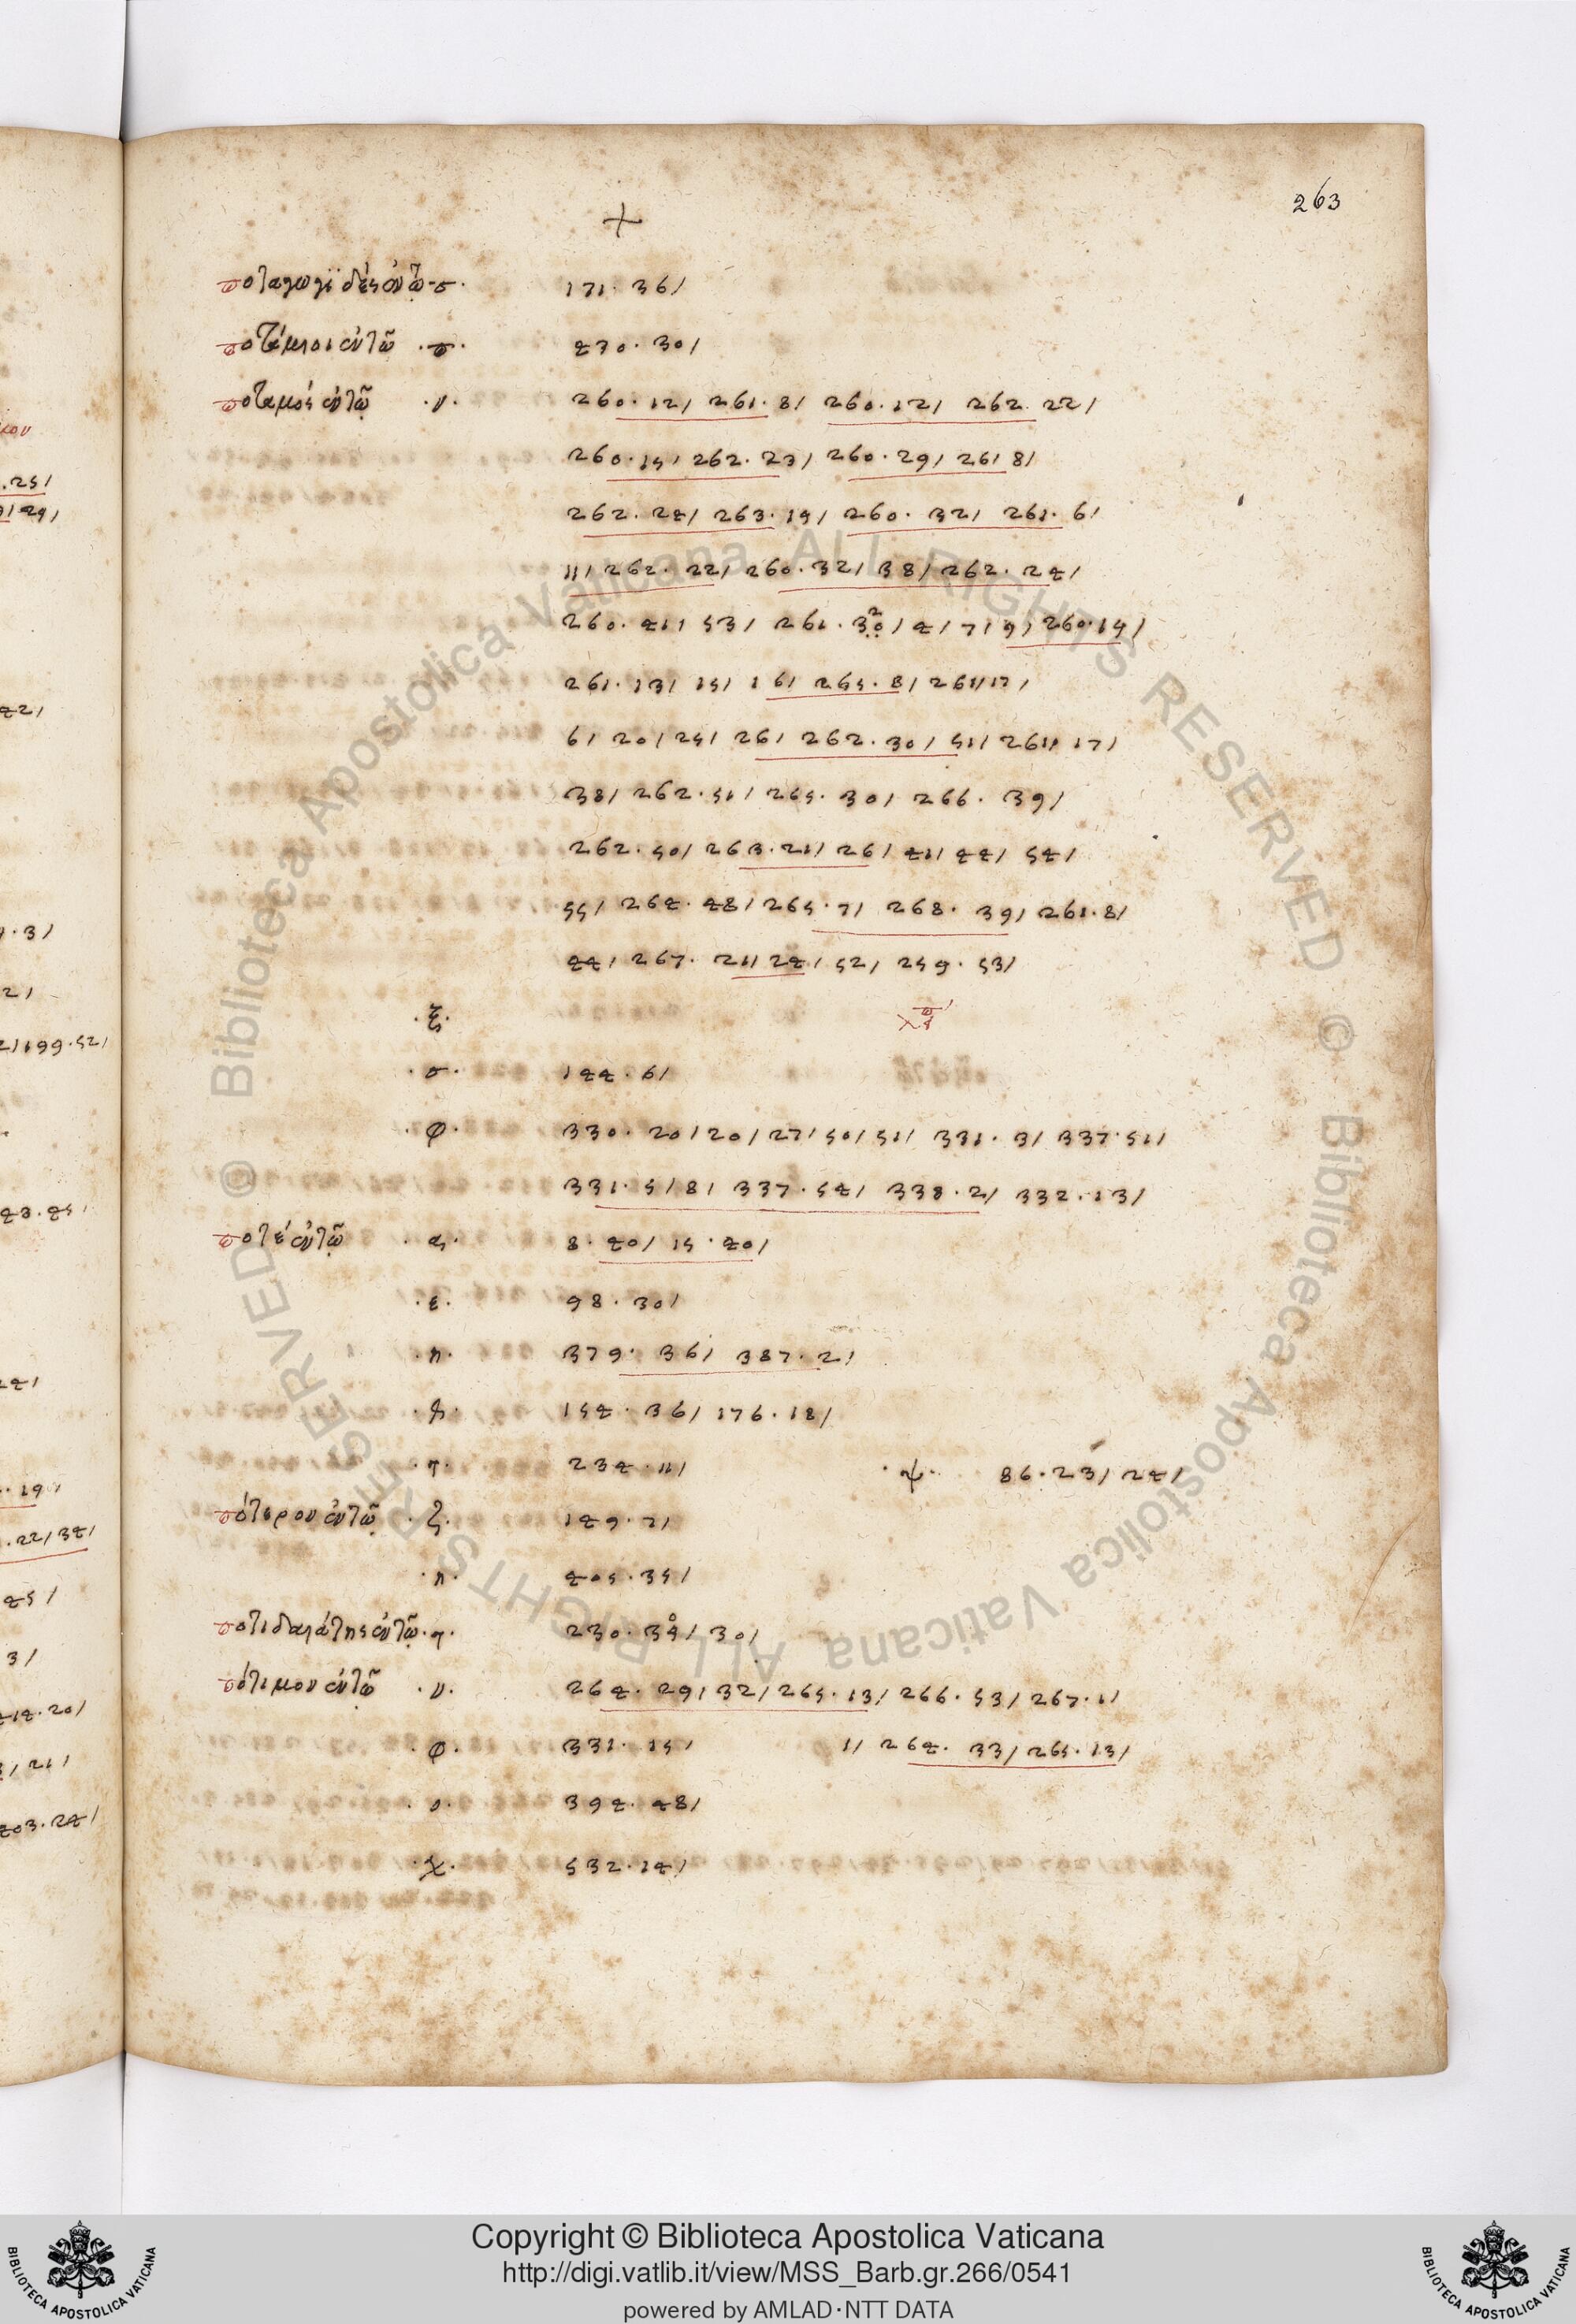 263
+
ποταγωγίδες ἐν τῷ ·σ· 171 · 36/
ποτάμιοι ἐν τῶ ·π· 470 · 30/
ποταμός ἐν τῷ ·ν· 260 · 12/ 261 · 8/ 260 · 12/ 262 · 22/
260 · 15/ 262 · 23/ 260 · 29/ 261 8/
262 · 24/ 263 · 19/ 260 · 32/ 261 · 6/
11/ 262 · 22/ 260 · 32/ 38/ 262 · 24/
260 · 41/ 53/ 261 · 4/ 7/ 9/ 260 · 14/
261 · 13/ 15/ 16/ 265 · 8/ 261/ 17/
6/ 20/ 25/ 26/ 262 · 30/ 51/ 261/ 17/
38/ 262 · 51/ 265 · 30/ 266 · 39/
262 · 50/ 263 · 21/ 26/ 41/ 44/ 54/
55/ 264 · 48/ 265 · 7/ 268 · 39/ 261 · 8/
44/ 267 · 21/ 24/ 52/ 259 · 53/
·ξ·
·σ· 144 · 6/
·φ· 330 · 20/ 20/ 27/ 50/ 51/ 331 · 3/ 337 · 51/
331 · 5/ 8/ 337 · 54/ 338 · 2/ 332 · 13/
ποτέ ἐν τῷ ·α· 8 · 40/ 15 · 40/
·ε· 98 · 30/
·η· 379 · 36/ 387 · 2/
154 · 36/ 176 · 18/
234 · 11/ ·ψ· 86 · 23/ 24/
πότερον ἐν τῷ ·ζ· 149 · 2/
·η· 405 · 35/
ποτιδαιάτης ἐν τῷ 230 · 30/
πότιμον ἐν τῷ ·ν· 264 · 29/ 32/ 265 · 13/ 266 · 53/ 267 · 1/
·φ· 331 · 15/ 1/ 264 · 33/ 265 · 13/
394 · 48/
·χ· 532 · 14/
Copyright © Biblioteca Apostolica Vaticana
http://digi.vatlib.it/view/MSS_Barb.gr.266/0541
powered by AMLAD·NTT DATA
BIBLIOTECA APOSTOLICA VATICANA
BIBLIOTECA APOSTOLICA VATICANA
© Biblioteca Apostolica Vaticana ALL RIGHTS RESERVED © Biblioteca Apostolica Vaticana ALL RIGHTS RESERVED